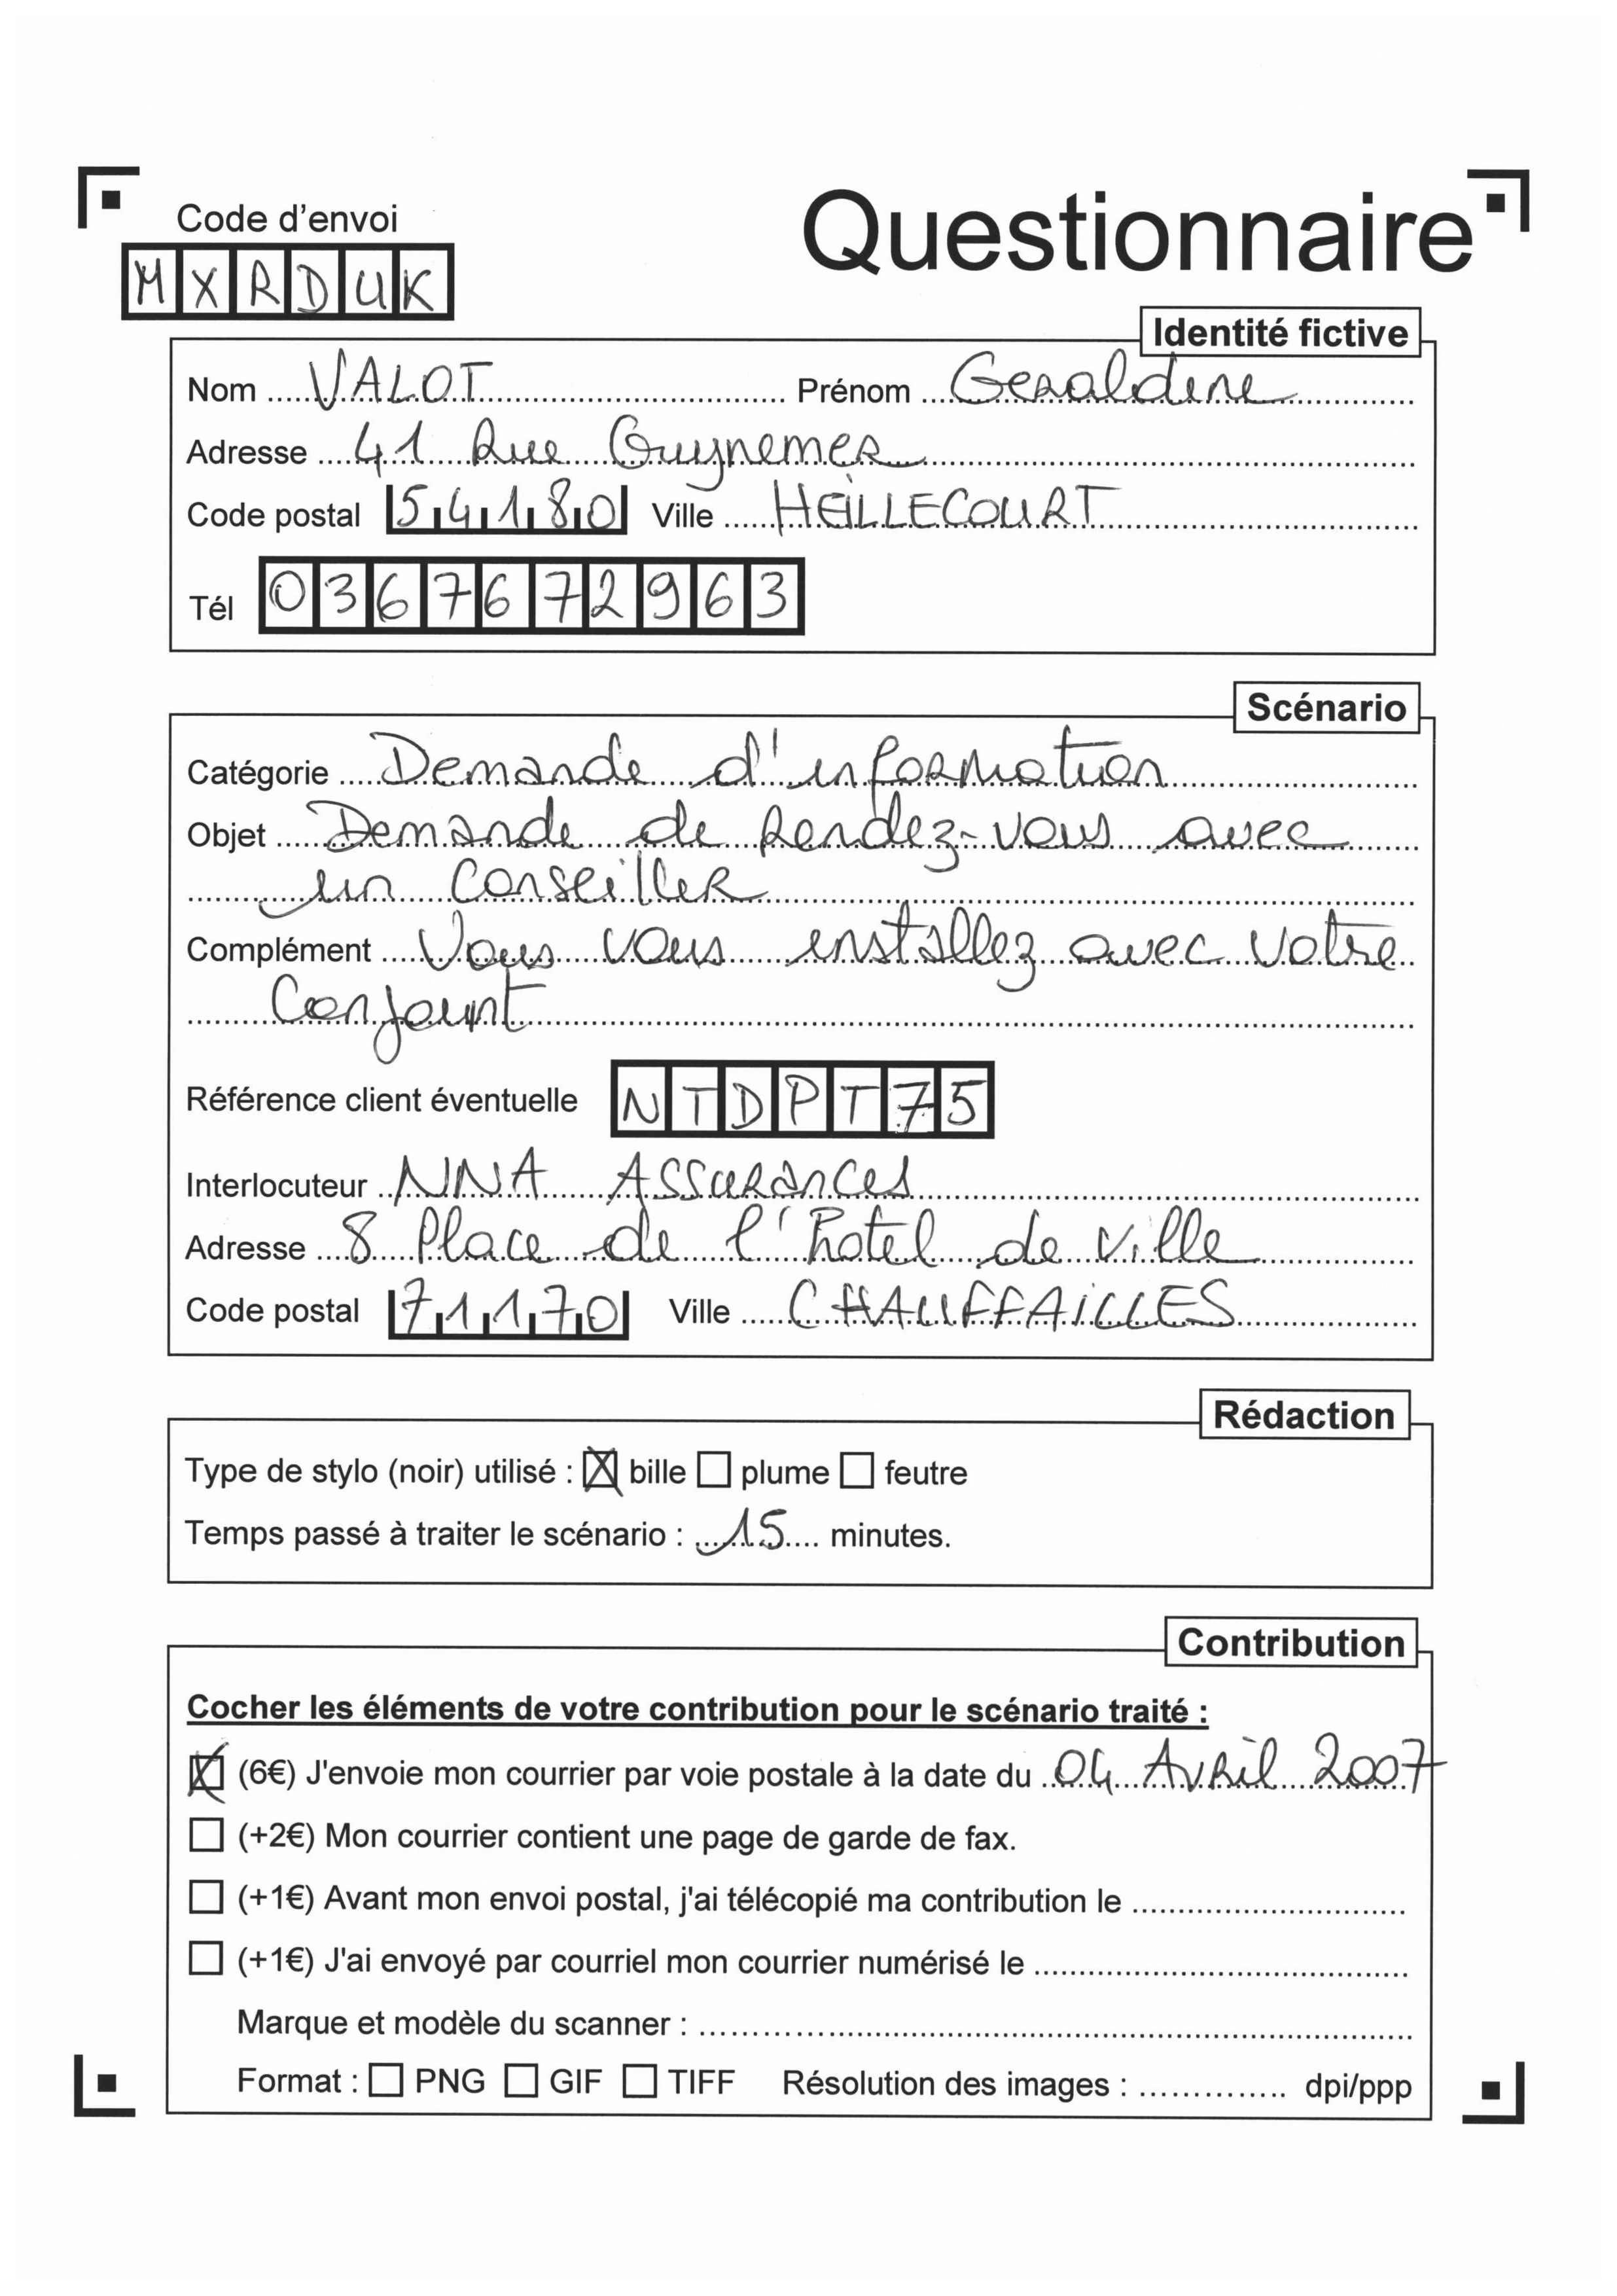 Code d'envoi
Questionnaire
MXRDUK
Identité fictive
Nom VALOT Prénom Geraldine
Adresse 41 Rue Guynemer
Code postal 54180 Ville HEILLECOURT
Tél 0367672963
Scénario
Catégorie Demande d'information
Objet Demande de Rendez-vous avec
un conseiller
Complément Vous vous installez avec votre
Conjoint
Référence client éventuelle NTDPT75
Interlocuteur NNA Assurances
Adresse 8 Place de l'hotel de ville
Code postal 71170 Ville CHAUFFAILLES
Rédaction
Type de stylo (noir) utilisé : ☒ bille ☐ plume ☐ feutre
Temps passé à traiter le scénario : 15 minutes.
Contribution
Cocher les éléments de votre contribution pour le scénario traité :
☒ (6€) J'envoie mon courrier par voie postale à la date du 04 Avril 2007
☐ (+2€) Mon courrier contient une page de garde de fax.
☐ (+1€) Avant mon envoi postal, j'ai télécopié ma contribution le
☐ (+1€) J'ai envoyé par courriel mon courrier numérisé le
Marque et modèle du scanner :
Format : ☐ PNG ☐ GIF ☐ TIFF Résolution des images : dpi/ppp